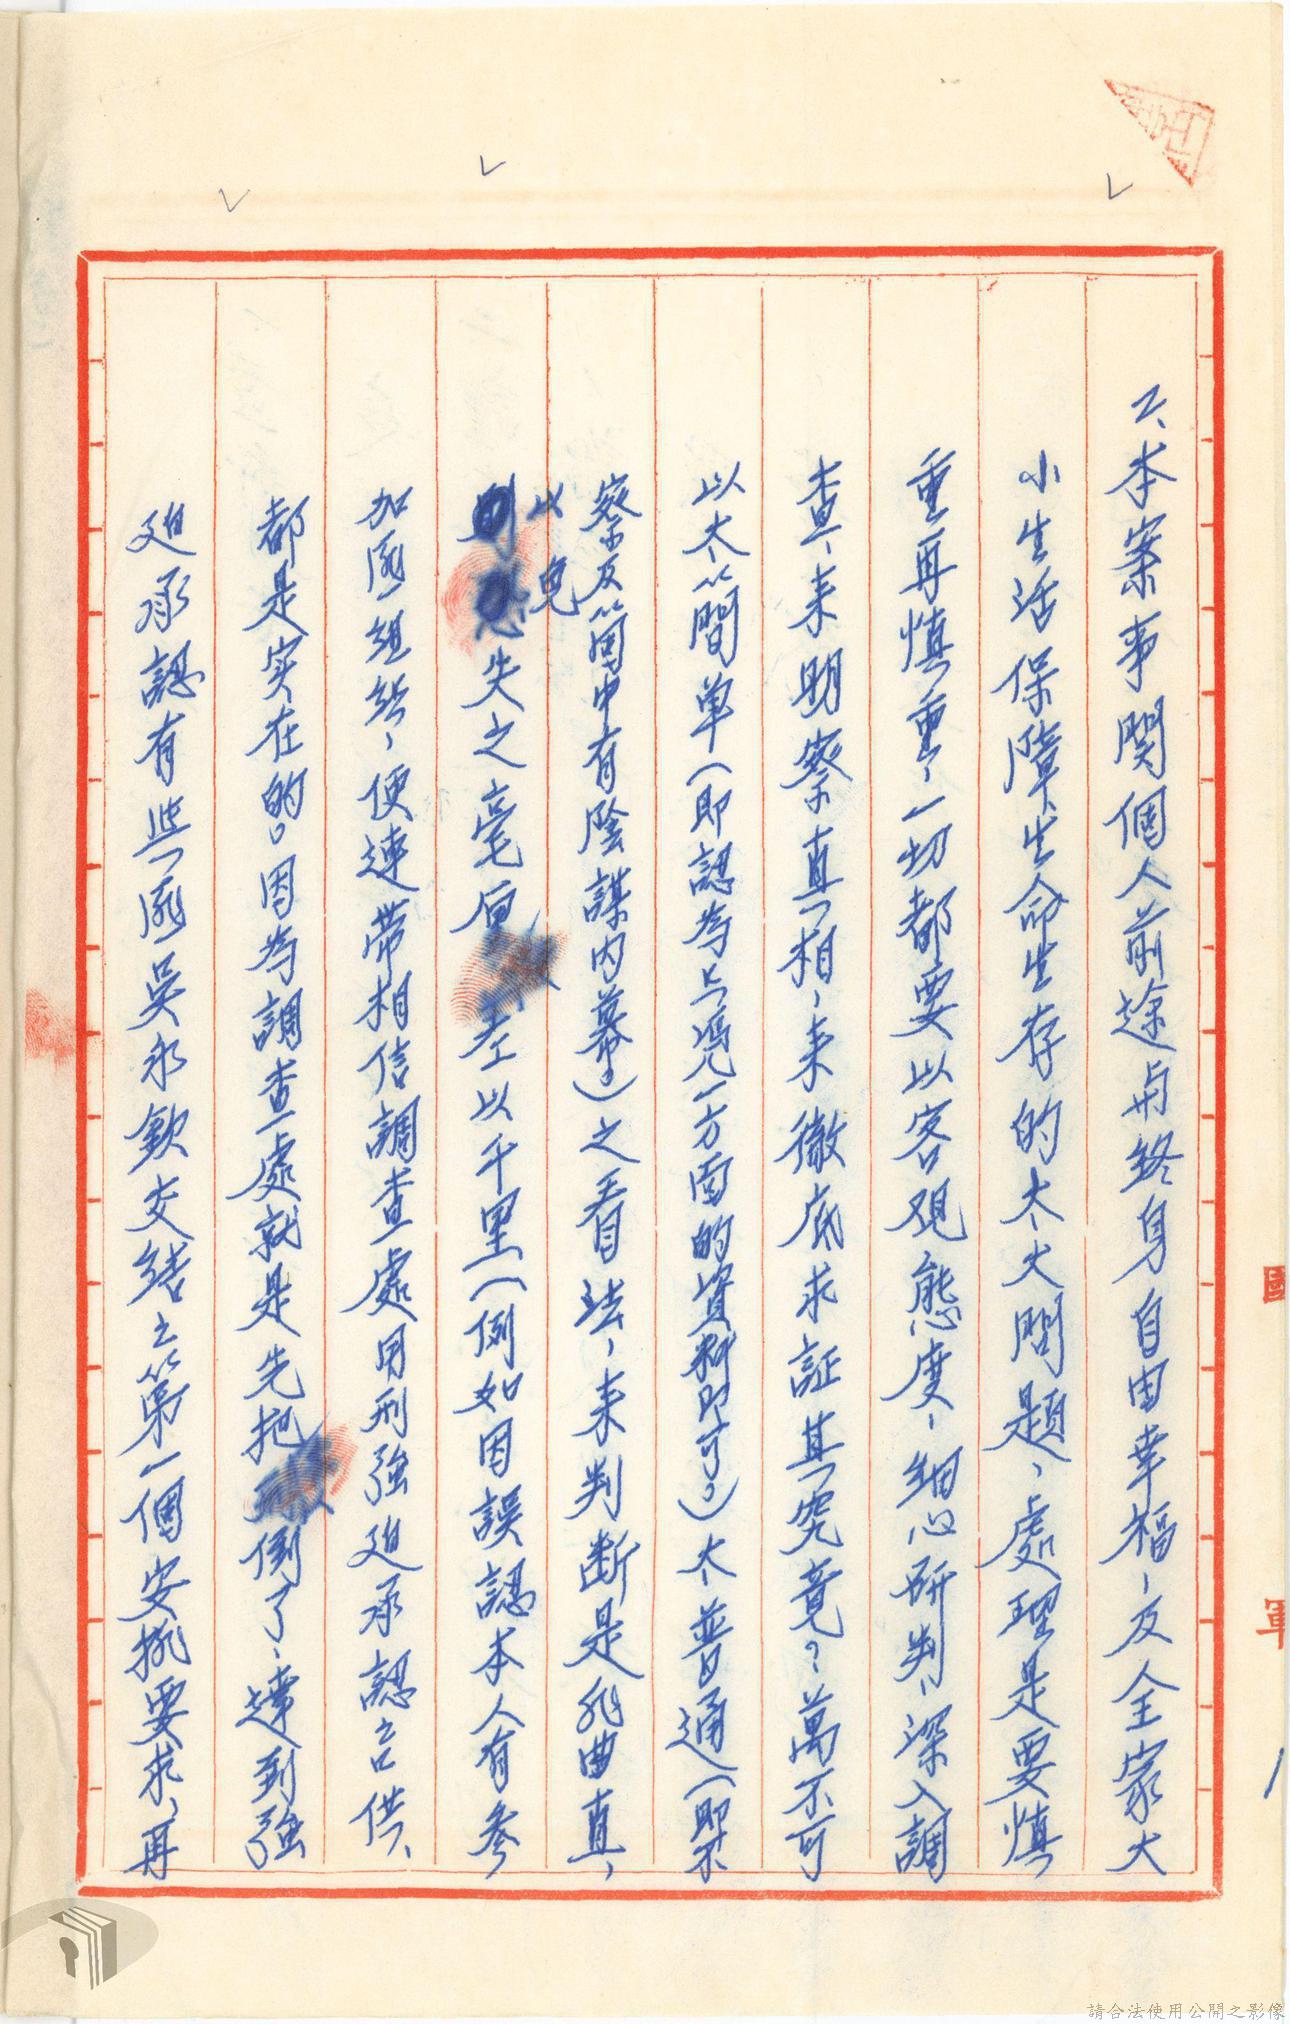 2、本案事関個人前途与終身自由幸福、及全家大
小生活保障、生命生存的太大問題、處理是要慎
重再慎重、一切都要以客观態度、細心研判、深入調
查、来明察真相、来徹底求証其究竟？萬不可
以太簡单（即認為只凭一方面的資料即可。）太普通（即不
察及箇中有陰謀内幕。）之看法、来判断是非曲直、
以免
失之毫厘差以千里（例如因誤認本人有參
加匪組結、便連帶相信調查處用刑強迫承認之口供、
都是实在的。因為調查處就是先把倒了、達到強
迫承認有些匪吳永欽交結之第一個安排要求、再
國
軍
請合法使用公開之影像